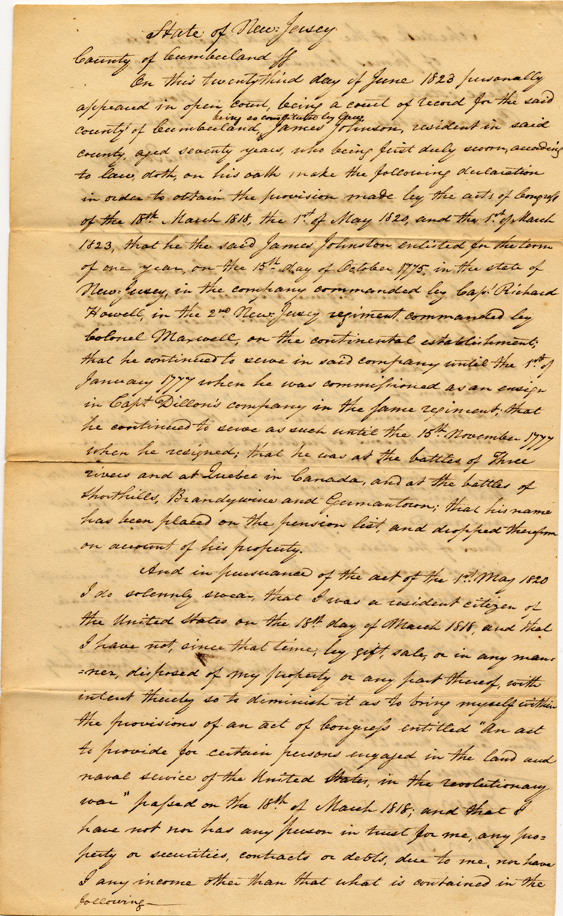 State of New-Jersey
County of Cumberland ss
On this twenty third day of June 1823 personally
appeared in open court, being a court of record for the said
being so constituted by law,
county of Cumberland, James Johnson, resident in said
county, aged seventy years, who being first duly sworn, according
to law, doth, on his oath make the following declaration
in order to obtain the provision made by the acts of Congress
of the 18th March 1818, the 1st of May 1820, and the 1st of March
1823, that he the said James Johnston enlisted for the term
of one year, on the 15th day of October 1775, in the state of
New-Jersey, in the company commanded by Capt Richard
Howell, in the 2nd New-Jersey regiment commanded by
Colonel Maxwell, on the continental establishment;
that he continued to serve in said company until the 1st of
January 1777 when he was commissioned as an ensign
in Capt Dillon's company in the same regiment; that
he continued to serve as such until the 15th November 1777
when he resigned; that he was at the battles of Three
rivers and at Quebec in Canada, and at the battles of
Shorthills, Brandywine and Germantown; that his name
has been placed on the pension list and dropped therefrom
on account of his property.
And in pursuance of the act of the 1st May 1820
I do solemnly swear, that I was a resident citizen of
the United States on the 18th day of March 1818, and that
I have not, since that time, by gift, sale, or in any man=
=ner, disposed of my property or any part thereof, with
intent thereby so to diminish it as to bring myself within
the provisions of an act of Congress entitled "An act
to provide for certain persons engaged in the land and
naval service of the United States, in the revolutionary
war" passed on the 18th of March 1818; and that I
have not nor has any person in trust for me, any pro=
perty or securities, contracts or debts, due to me, nor have
I any income other than that what is contained in the
following—